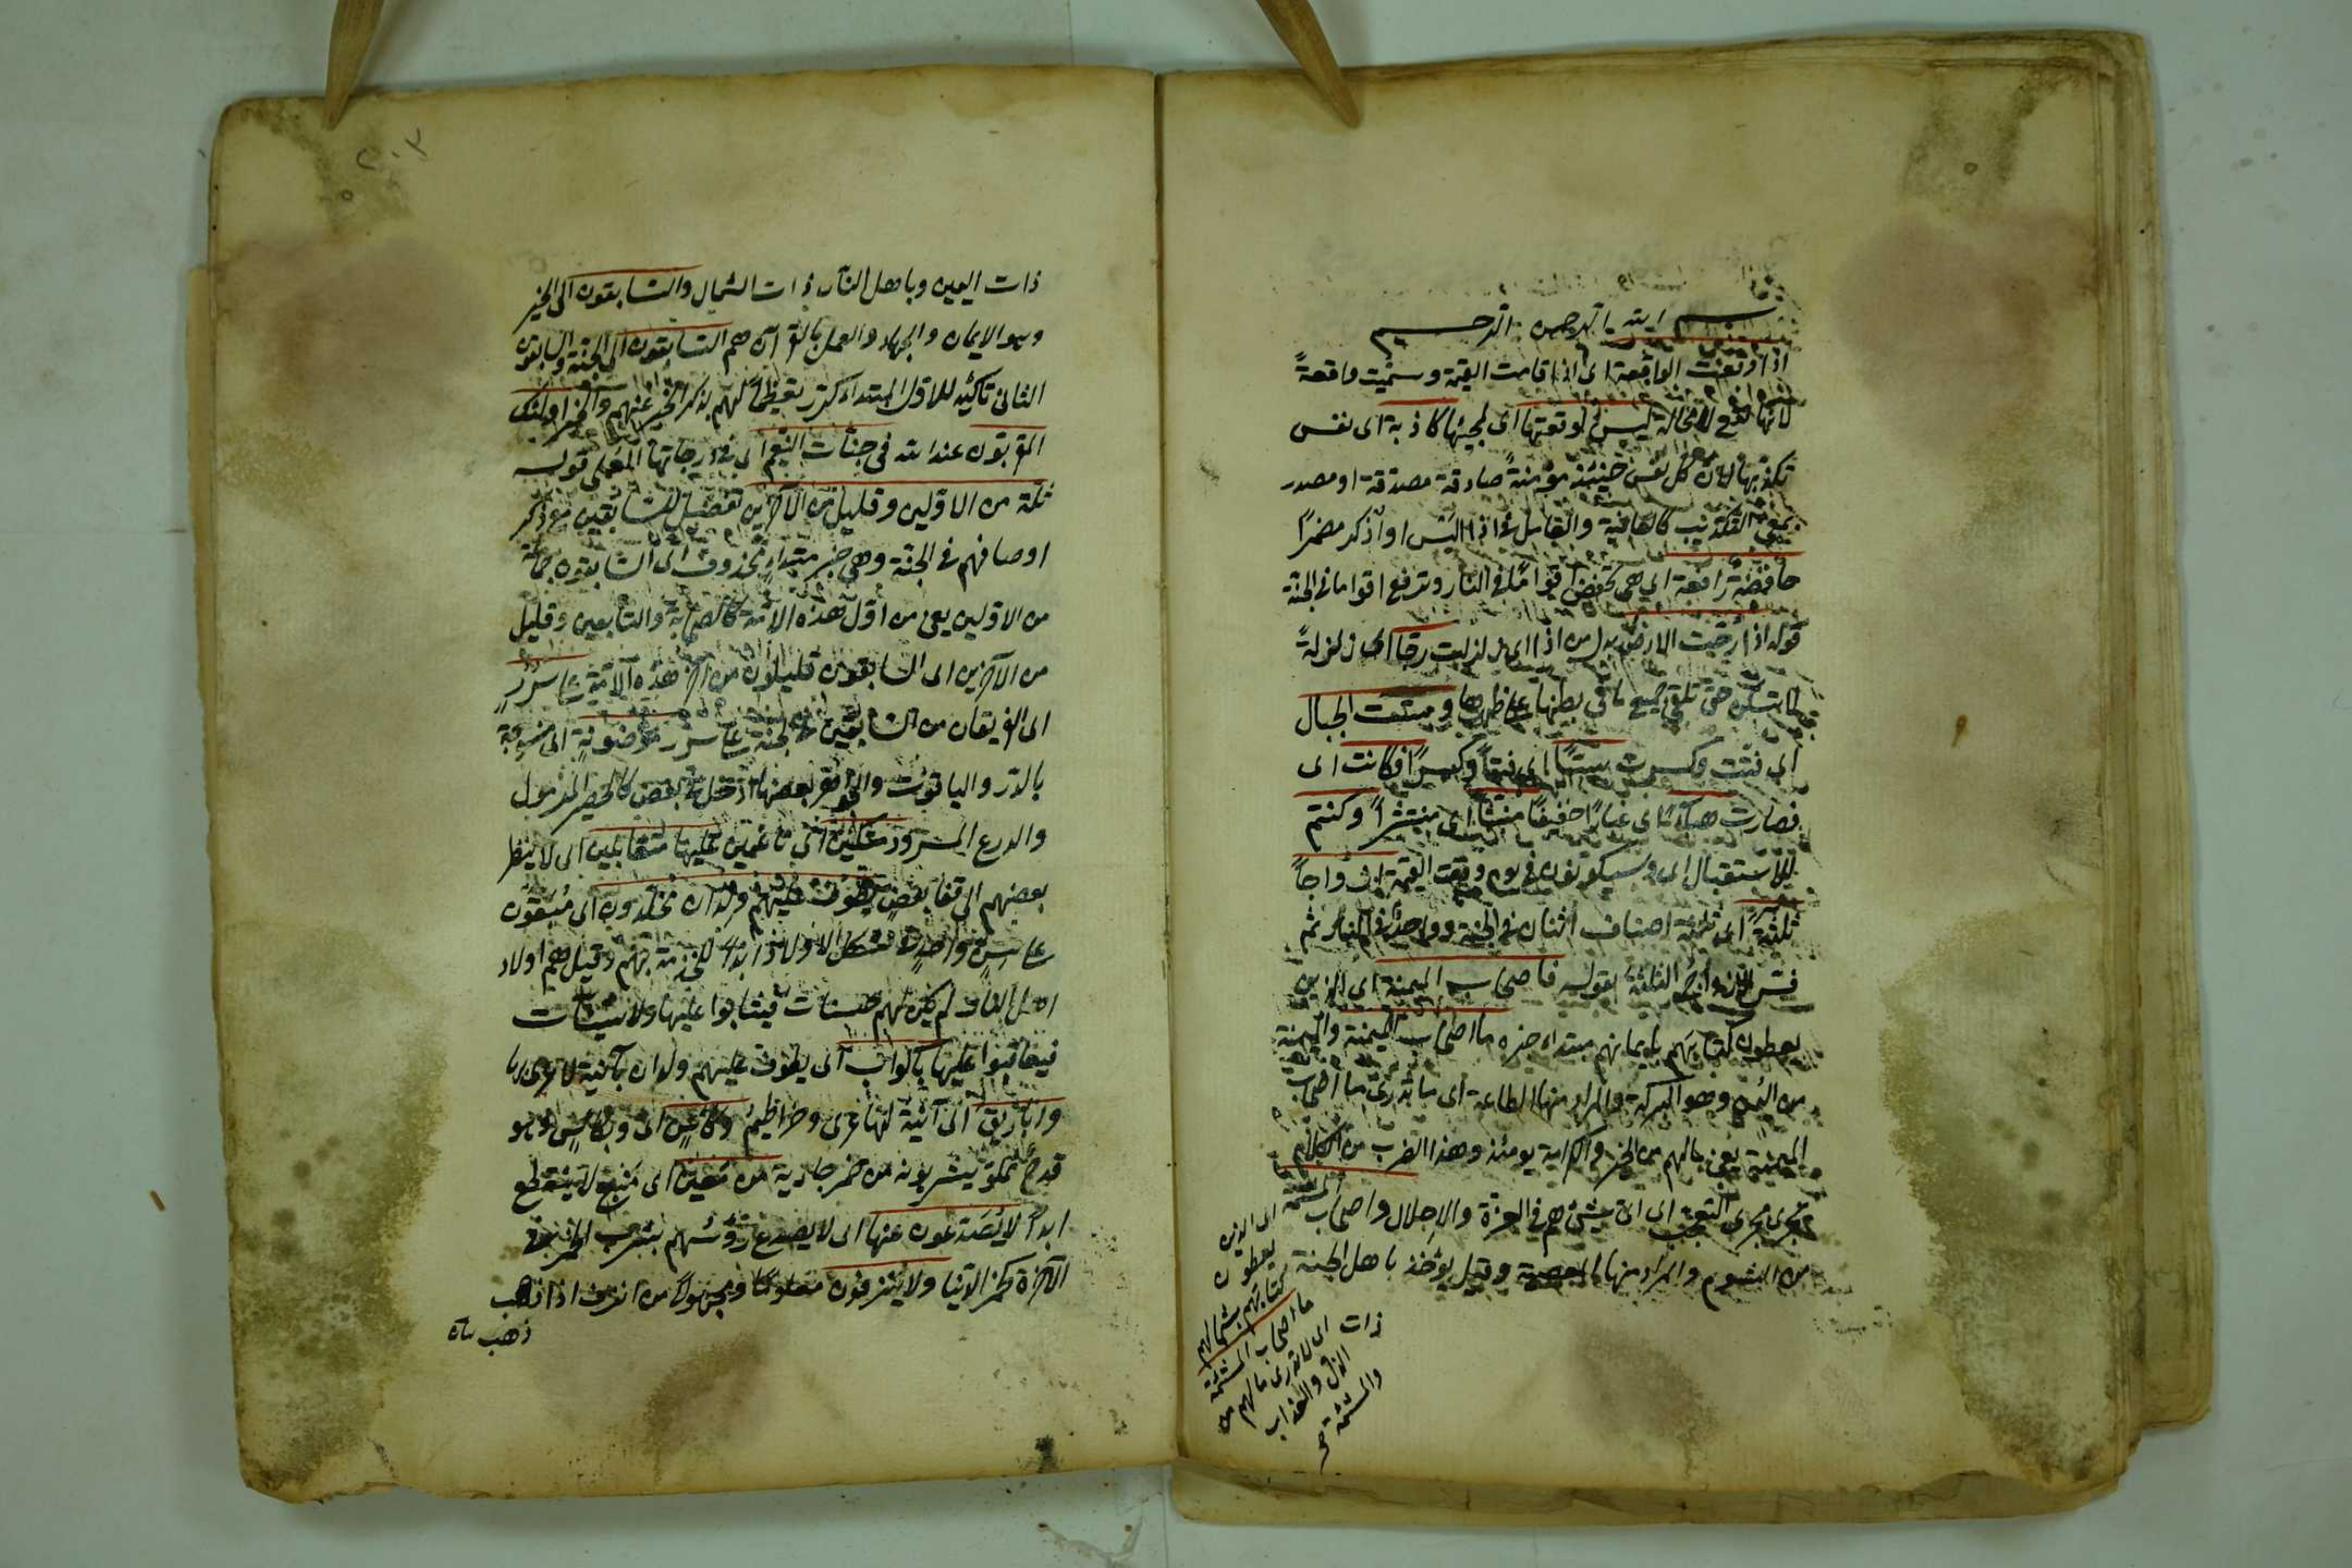 بسم الله الرحمن الرحيم
اذا وقعت الواقعة اى اذا قامت القيمة وسميت واقعةً
لانها تقع لا محالة ليس لوقعتها اى لمجيئها كاذبة اى نفس
تكذبها لان كل نفس حينئذ مؤمنةً صادقة مصدقة او مصدر
بمعنى التكذيب كالعافية والعامل فى اذا اليس او اذكر مضمرًا
خافضة رافعة اى هى تخفض اقواما فى النار وترفع اقواما فى الجنة
قوله اذا رجت الارض بدل من اذا اى زلزلت رجا اى زلزلةً
حتى تلقى جميع ما فى بطنها على ظهرها وبست الجبال
اى فتتت وكسرت بسًّا اى فتًّا وكسرًا فكانت اى
فصارت هباءً اى غبارًا خفيفًا منبثًا اى منتشرًا وكنتم
للاستقبال اى وسيكونون فى يوم وقعت القيمة ازواجاً
ثلثة اى ثلثة اصناف اثنان فى الجنة وواحد فى النار ثم
فسر الازواج الثلثة بقوله فاصحاب الميمنة اى الذين
يعطون كتابهم بايمانهم مبتداء خبره ما اصحاب الميمنة والميمنة
من اليمن وهو البركة والمراد منها الطاعة اى ما تدرى ما اصحاب
الميمنة يعنى مالهم من الخير والكرامة يومئذ وهذا الضرب من الكلام
تجرى مجرى التعجب اى اى شئ هم فى العزة والاجلال واصحاب المشئمة
من الشوم والمراد منها المعصية وقيل يؤخذ باهل الجنة
اى الذين
يعطون
كتابهم بشمالهم
ما اصحاب المشئمة
اى لا تدرى مالهم من
الذل والعذاب
والمشئمة صح
ذات
٢٠٢
ذات اليمين وباهل النار ذات الشمال والسابقون الى الخير
وهو الايمان والجهاد والعمل بالقرآن هم السابقون الى الجنة والسابقون
الثانى تاكيد للاول المبتداء كرر تعظيمًا لهم بذكر الخبر عنهم والخبر اولئك
المقربون عند الله فى جنات النعيم اى فى درجاتها المعلى قوله
ثلة من الاولين وقليل من الآخرين تفضيل للسابقين مع ذكر
اوصافهم فى الجنة وهى خبر مبتداءٍ محذوف اى السابقون جماعة
من الاولين يعنى من اول هذه الامة كالصحابة والتابعين وقليل
من الآخرين اى السابقون قليلون من آخر هذه الامة على سررٍ
اى الفريقان من السابقين فى الجنة على سرر موضونةٍ اى منسوجة
بالدر والياقوت والجواهر بعضها ادخل فى بعض كالحصير المرمول
والدرع المسرود متكئين اى ناعمين عليها متقابلين اى لا ينظر
بعضهم الى قفا بعض يطوف عليهم ولدان مخلدون اى مبقون
على سنٍ واحدٍ شكل الاولاد ابدًا للخدمة بهم وقيل هم اولاد
اهل النار لم يكن لهم حسنات فيثابوا عليها ولا سيئات
فيعاقبوا عليها باكواب اى يطوف عليهم ولدان بآنية لا عرى لها
واباريق اى آنية لها عرى وخراطيم وكاسٍ اى وبكاسٍ وهو
قدح مملو يشربونه من خمر جارية من معين اى منبع لا ينقطع
ابدًا لا يصدعون عنها اى لا يصدع رؤسهم بشرب الخمر فى
الآخرة كخمر الدنيا ولا ينزفون معلومًا ومجهولًا من انزف اذا ذهب
ذهب